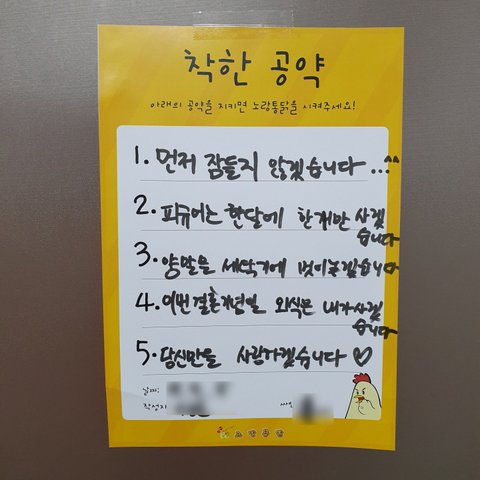 착한 공약
아래의 공약을 지키면 노랑통닭을 시켜주세요!
1. 먼저 잠들지 않겠습니다...^^
2. 피규어는 한달에 한개만 사겠
습니다
3. 양말은 세탁기에 벗어놓겠습니다
4. 이번 결혼기념일 외식은 내가 사겠
습니다
5. 당신만을 사랑하겠습니다 ♡
날짜:
작성자
노랑통닭